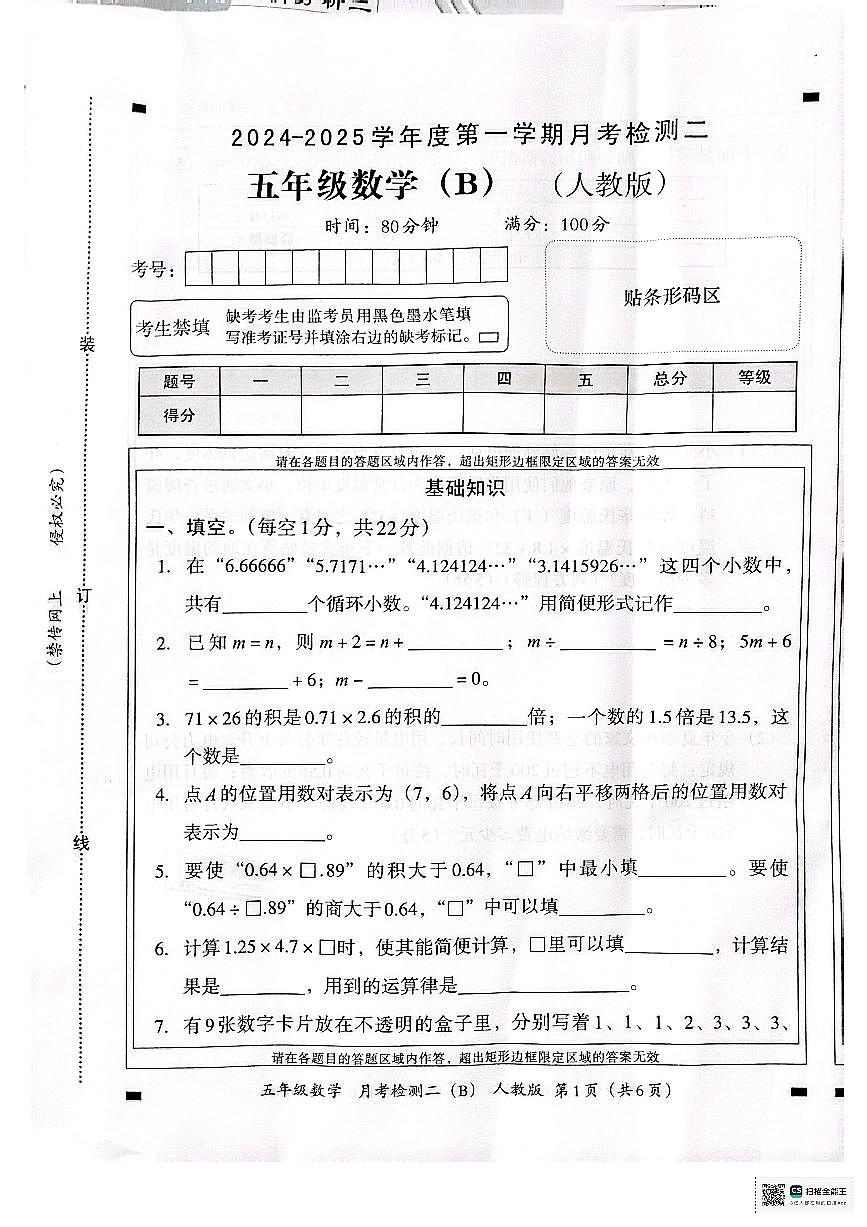 2024-2025学年度第一学期月考检测二
五年级数学（B） （人教版）
时间：80分钟 满分：100分
考号：
贴条形码区
考生禁填 缺考考生由监考员用黑色墨水笔填
写准考证号并填涂右边的缺考标记。
题号 一 二 三 四 五 总分 等级
得分
请在各题目的答题区域内作答，超出矩形边框限定区域的答案无效
基础知识
一、填空。（每空1分，共22分）
1. 在“6.66666”“5.7171…”“4.124124…”“3.1415926…”这四个小数中，
共有________个循环小数。“4.124124…”用简便形式记作________。
2. 已知m=n，则m+2=n+________；m÷________=n÷8；5m+6
=________+6；m-________=0。
3. 71×26的积是0.71×2.6的积的________倍；一个数的1.5倍是13.5，这
个数是________。
4. 点A的位置用数对表示为（7，6），将点A向右平移两格后的位置用数对
表示为________。
5. 要使“0.64×□.89”的积大于0.64，“□”中最小填________。要使
“0.64÷□.89”的商大于0.64，“□”中可以填________。
6. 计算1.25×4.7×□时，使其能简便计算，□里可以填________，计算结
果是________，用到的运算律是________。
7. 有9张数字卡片放在不透明的盒子里，分别写着1、1、1、2、3、3、3、
请在各题目的答题区域内作答，超出矩形边框限定区域的答案无效
五年级数学 月考检测二（B） 人教版 第1页（共6页）
装
订
线
（禁传网上 侵权必究）
CS 扫描全能王